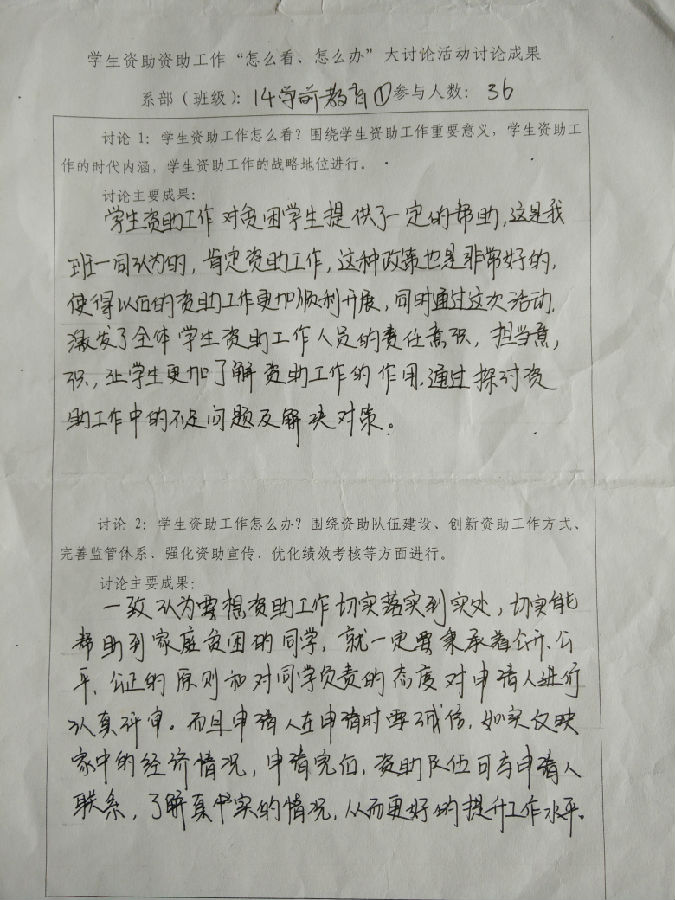 学生资助资助工作“怎么看、怎么办”大讨论活动讨论成果
系部（班级）：14学前教育①参与人数：36
讨论 1：学生资助工作怎么看？围绕学生资助工作重要意义，学生资助工
作的时代内涵，学生资助工作的战略地位进行。
讨论主要成果：
学生资助工作对贫困学生提供了一定的帮助，这是我
班一同认为的，肯定资助工作，这种政策也是非常好的，
使得以后的资助工作更加顺利开展，同时通过这次活动，
激发了全体学生资助工作人员的责任意识，担当意
识，让学生更加了解资助工作的作用，通过探讨资
助工作中的不足问题及解决对策。
讨论 2：学生资助工作怎么办？围绕资助队伍建设、创新资助工作方式、
完善监管体系、强化资助宣传、优化绩效考核等方面进行。
讨论主要成果：
一致认为要想资助工作切实落实到实处，切实能
帮助到家庭贫困的同学，就一定要秉承着公开、公
平、公正的原则和对同学负责的态度对申请人进行
认真评审。而且申请人在申请时要诚信，如实反映
家中的经济情况，申请完后，资助队伍可与申请人
联系，了解真实的情况，从而更好的提升工作水平。